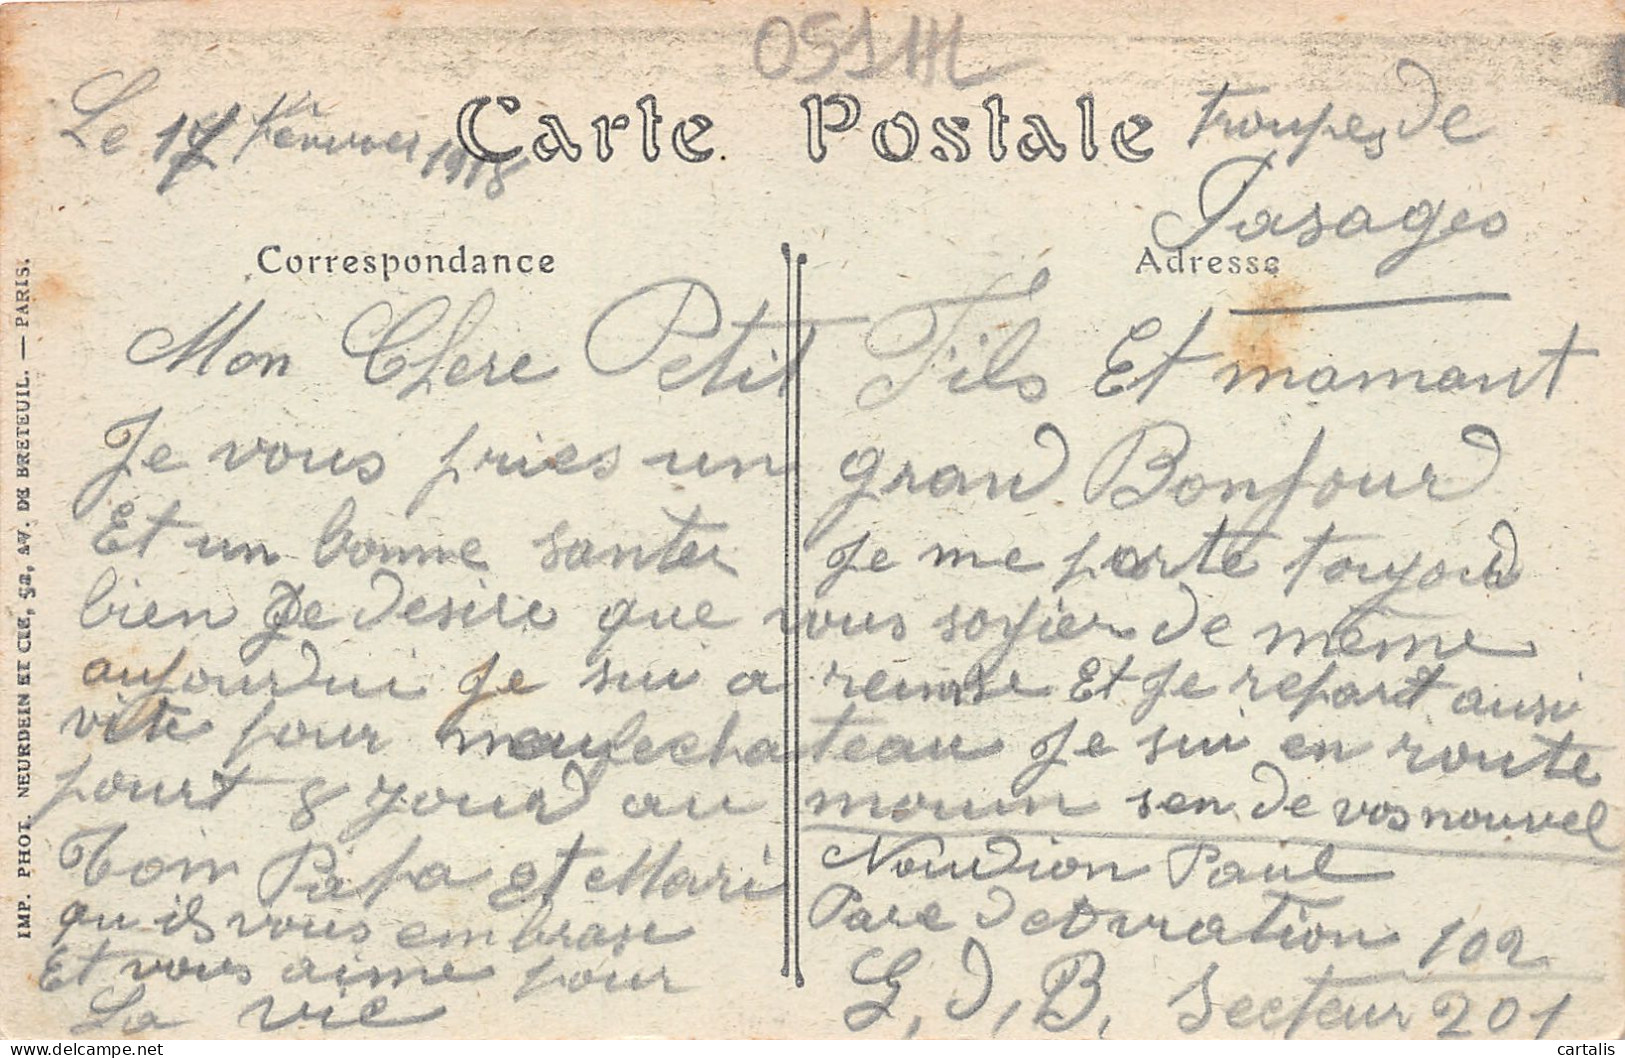 051HL
Le 17 Fevrier 1918
Carte Postale
troupes de
Pasages
Correspondance
Adresse
Mon Chere Petit Fils Et mamant
Je vous pries un grand Bonjour
Et un bonne santer Je me porte toujour
bien Je desire que vous soyier de même
aujourdui Je sui a reims Et Je repart ausi
vite pour neufechateau Je sui en route
pourt 8 jourd au mouin sen de vos nouvel
Tom Papa et Mari
qu ils vous embrase
Et vous aime pour
La vie
Nourdion Paul
Parc de Aviation 102
G. D. B. Secteur 201
IMP. PHOT. NEURDEIN ET CIE, 52, AV. DE BRETEUIL. — PARIS.
cartalis